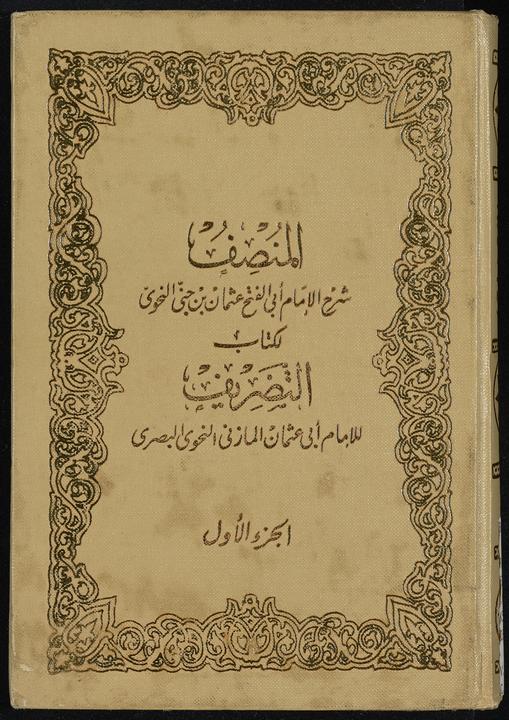 المُنصِفُ
شرح الإمام أبي الفتح عثمان بن جني النحوي
لكتاب
التَّصْرِيفِ
للإمام أبي عثمان المازني النحوي البصري
الجزء الأول